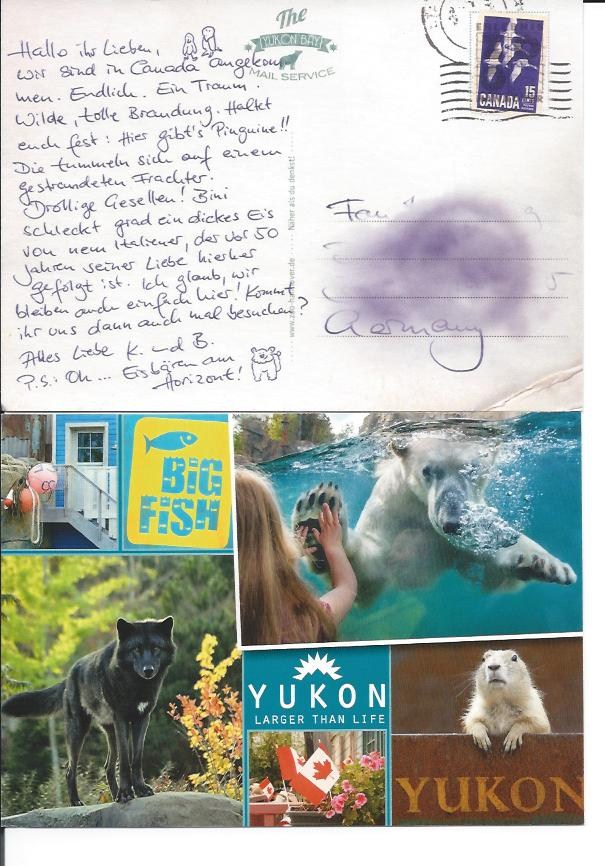 The
YUKON BAY
MAIL SERVICE
Hallo ihr Lieben,
wir sind in Canada angekom
men. Endlich. Ein Traum.
Wilde, tolle Brandung. Haltet
euch fest: Hier gibt's Pinguine!!
Die tummeln sich auf einem
gestrandeten Frachter.
Drollige Gesellen! Bini
schleckt grad ein dickes Eis
von nem Italiener, der vor 50
Jahren seiner Liebe hierher
gefolgt ist. Ich glaub, wir
bleiben auch einfach hier! Kommt
ihr uns dann auch mal besuchen?
Alles Liebe K. und B.
P.S.: Oh... Eisbären am
Horizont!
Näher als du denkst!
CANADA 15
Germany
BIG
FISH
YUKON
LARGER THAN LIFE
YUKON